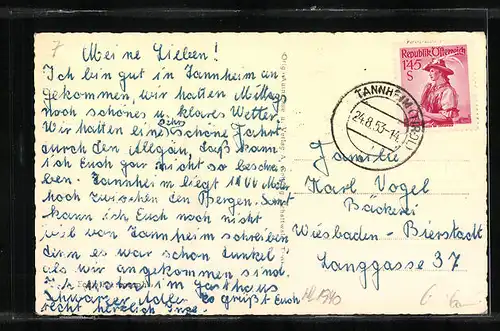 7
Meine Lieben!
Ich bin gut in Tannheim an
gekommen, wir hatten Mittags
noch schönes u. klares Wetter.
Wir hatten eine schöne Fahrt
durch den Allgäu, daß kann
ich Euch gar nicht so beschrei
ben. Tannheim liegt Meter
hoch zwischen den Bergen. Sonst
kann ich Euch noch nicht
viel von Tannheim schreiben
denn es war schon dunkel
als wir angekommen sind.
Ich im Gasthaus
Schwarzer Adler. Es grüßt Euch
recht herzlich Inge.
Republik Österreich
1'45
S
TANNHEIM (TIROL)
24.8.53-14
Familie
Karl Vogel
Bäckerei
Wiesbaden-Bierstadt
Langgasse 37